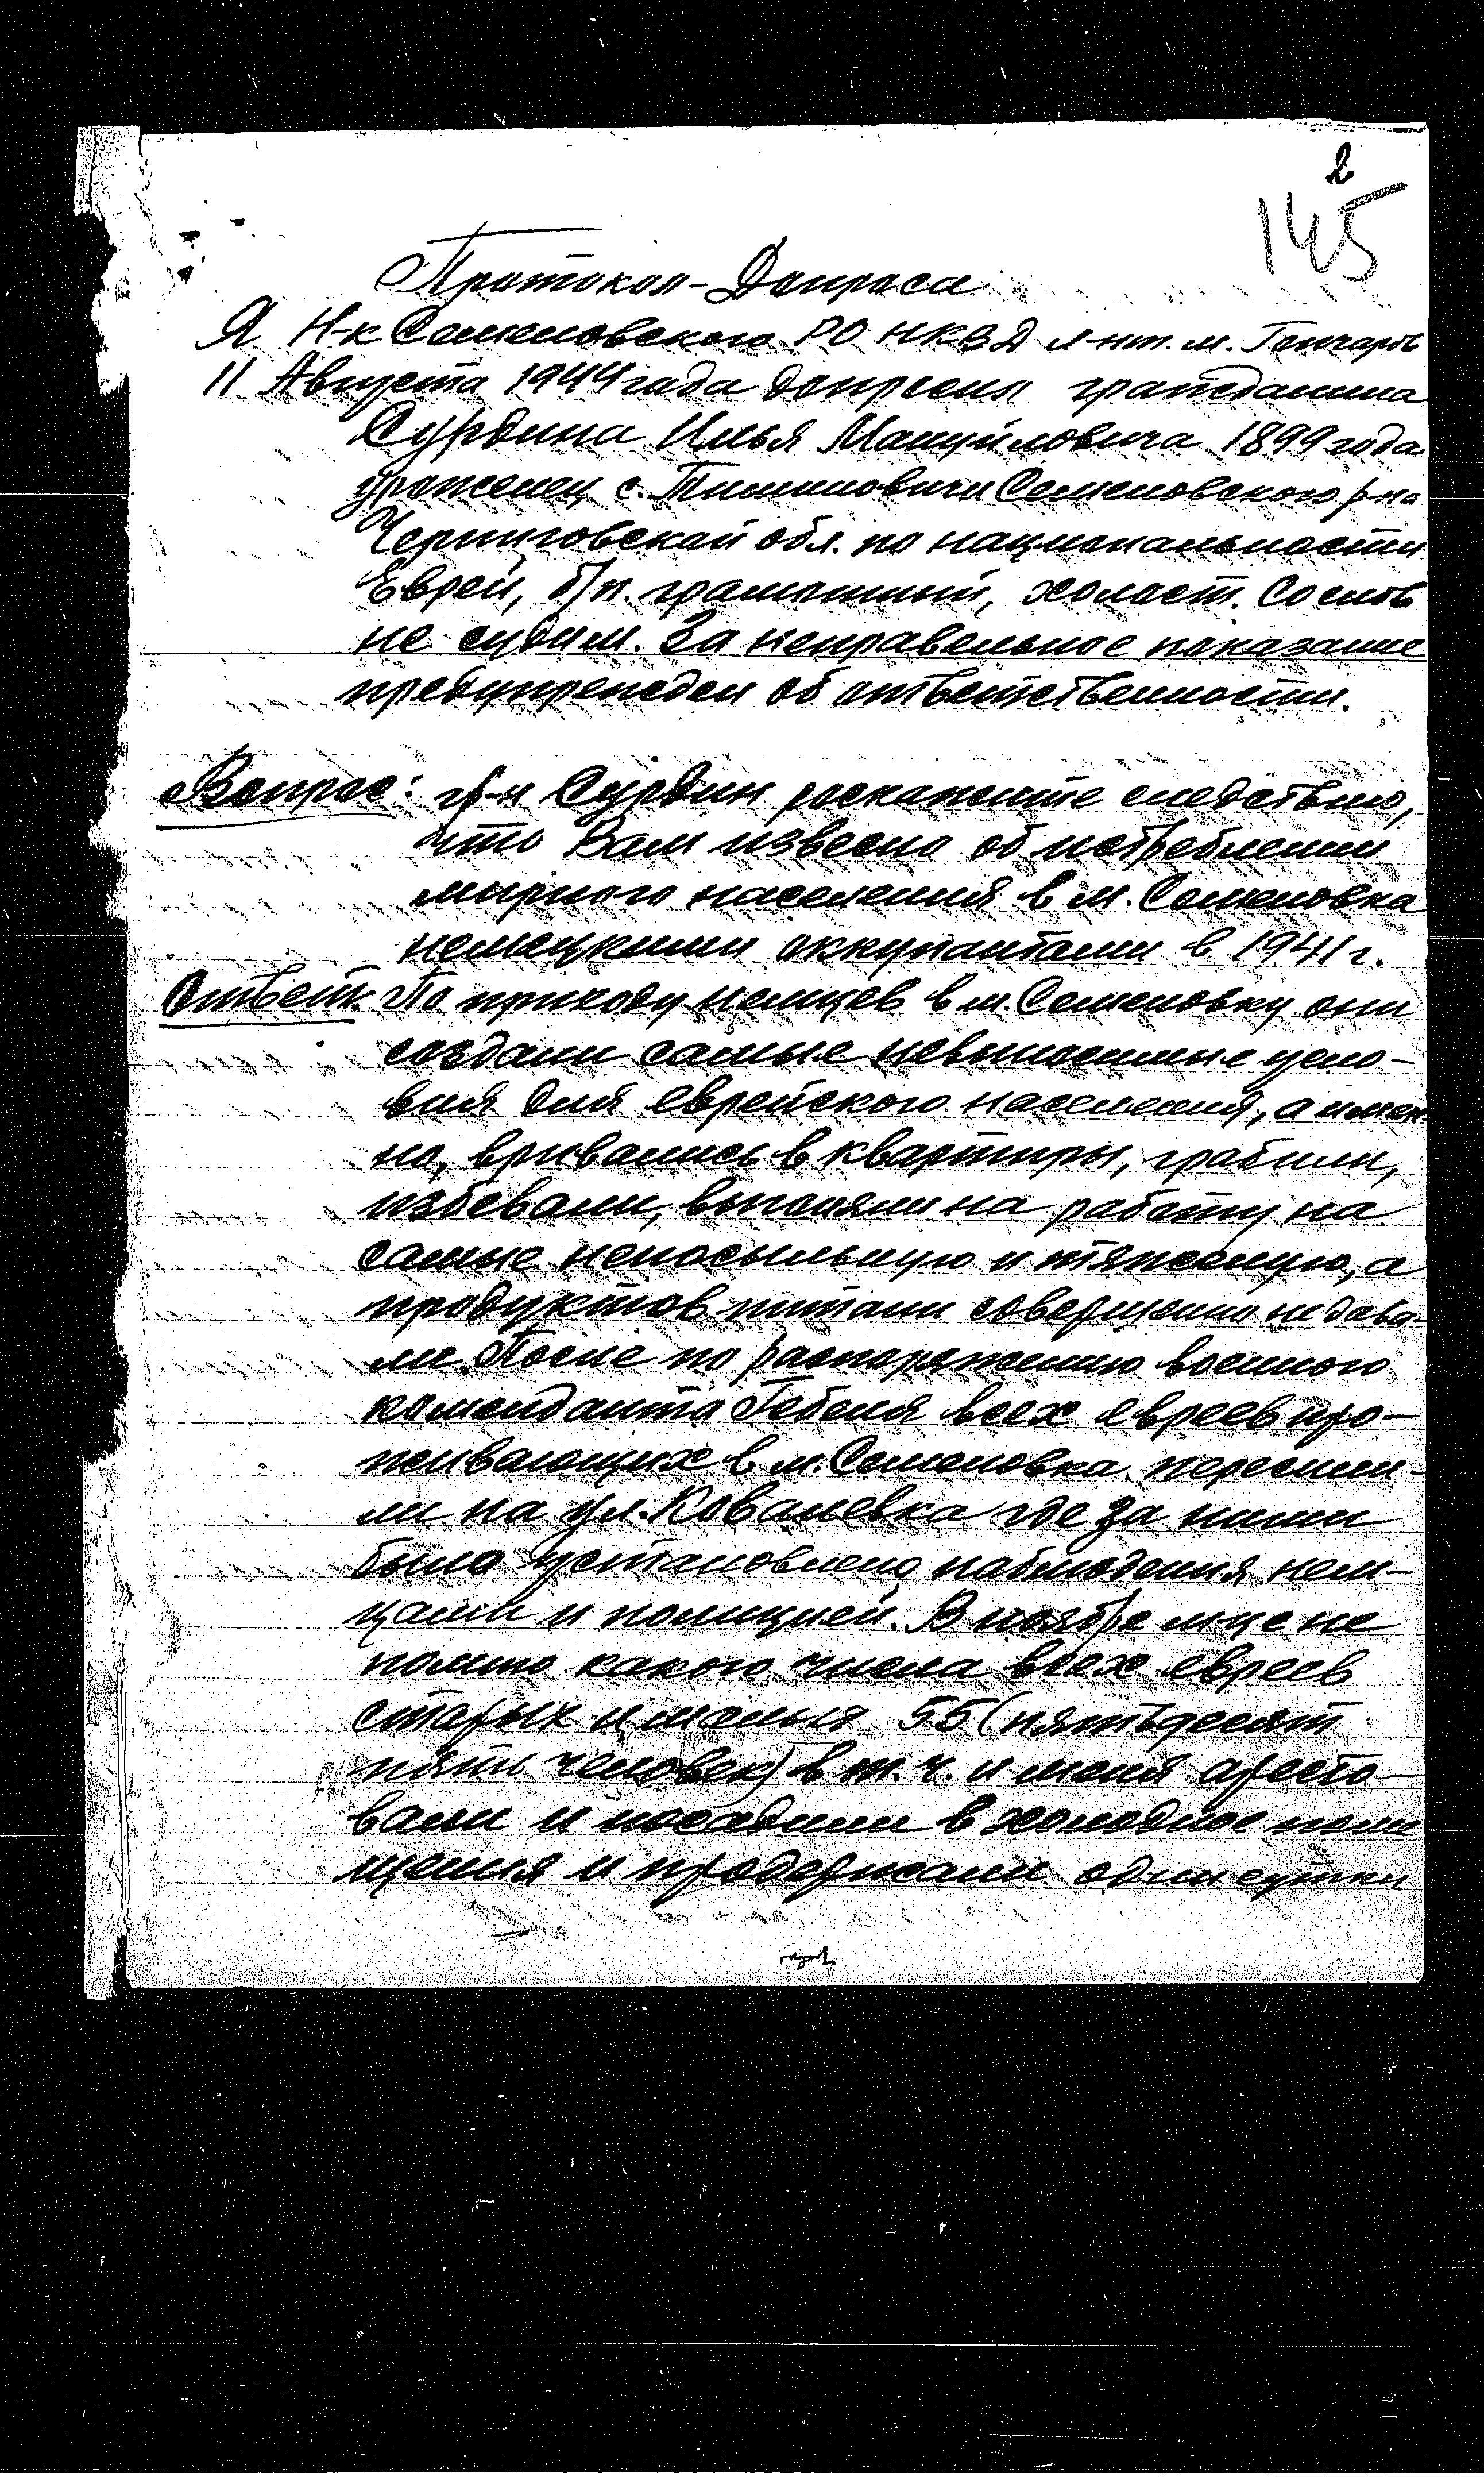 2
145
Протокол-Допроса
Я Н-к Семеновского РО НКВД л-нт. м. Гончаров
11 Августа 1944 года допросил гражданина
Сурдина Илья Мануйловича 1899 года
уроженец с. Тимоновичи Семеновского р-на
Черниговской обл. по национальности
Еврей, б/п. грамотный, холост. Со слов
не судим. За неправельное показание
предупрежден об ответственности.
Вопрос: гр-н Сурдин роскажите следствию,
что Вам извесно об истреблении
мирного населения в м. Семеновка
немецкими оккупантами в 1941 г.
Ответ: По приходу немцев в м. Семеновку они
создали самые невыносимые усло-
вия для еврейского населения, а имен
но, врывались в квартиры, грабили,
избевали, выгоняли на работу на
самые непосильную и тяжелую, а
продуктов питани совершенно не дава-
ли. После по распоряжению военного
коменданта Гебеля всех евреев про-
живающих в м. Семеновка переселили-
ли на ул. Ковалевка где за ними
было установлено наблюдения нем-
цами и полицией. В ноябре м-це не
помню какого числа всех евреев
старых и малых 55 (пятьдесят
пять человек) в т.ч. и меня аресто-
вали и посадили в холодное поме
щения и продержали одни сутки